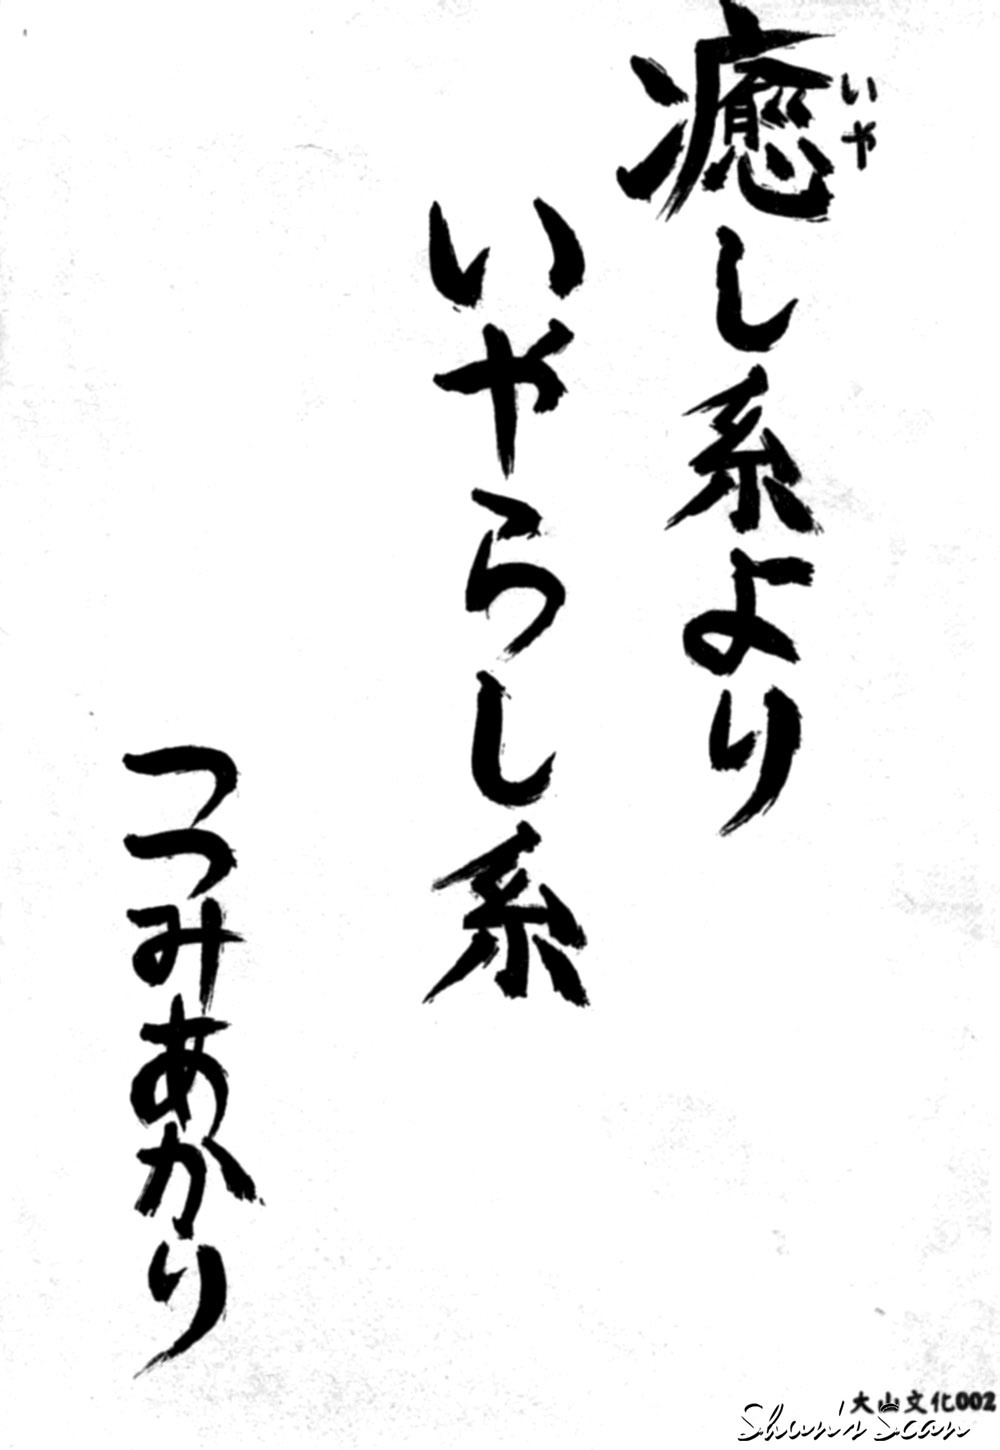 癒し系より
いや
いやらし系
つつみあかり
大山文化002
Shun'n Scan